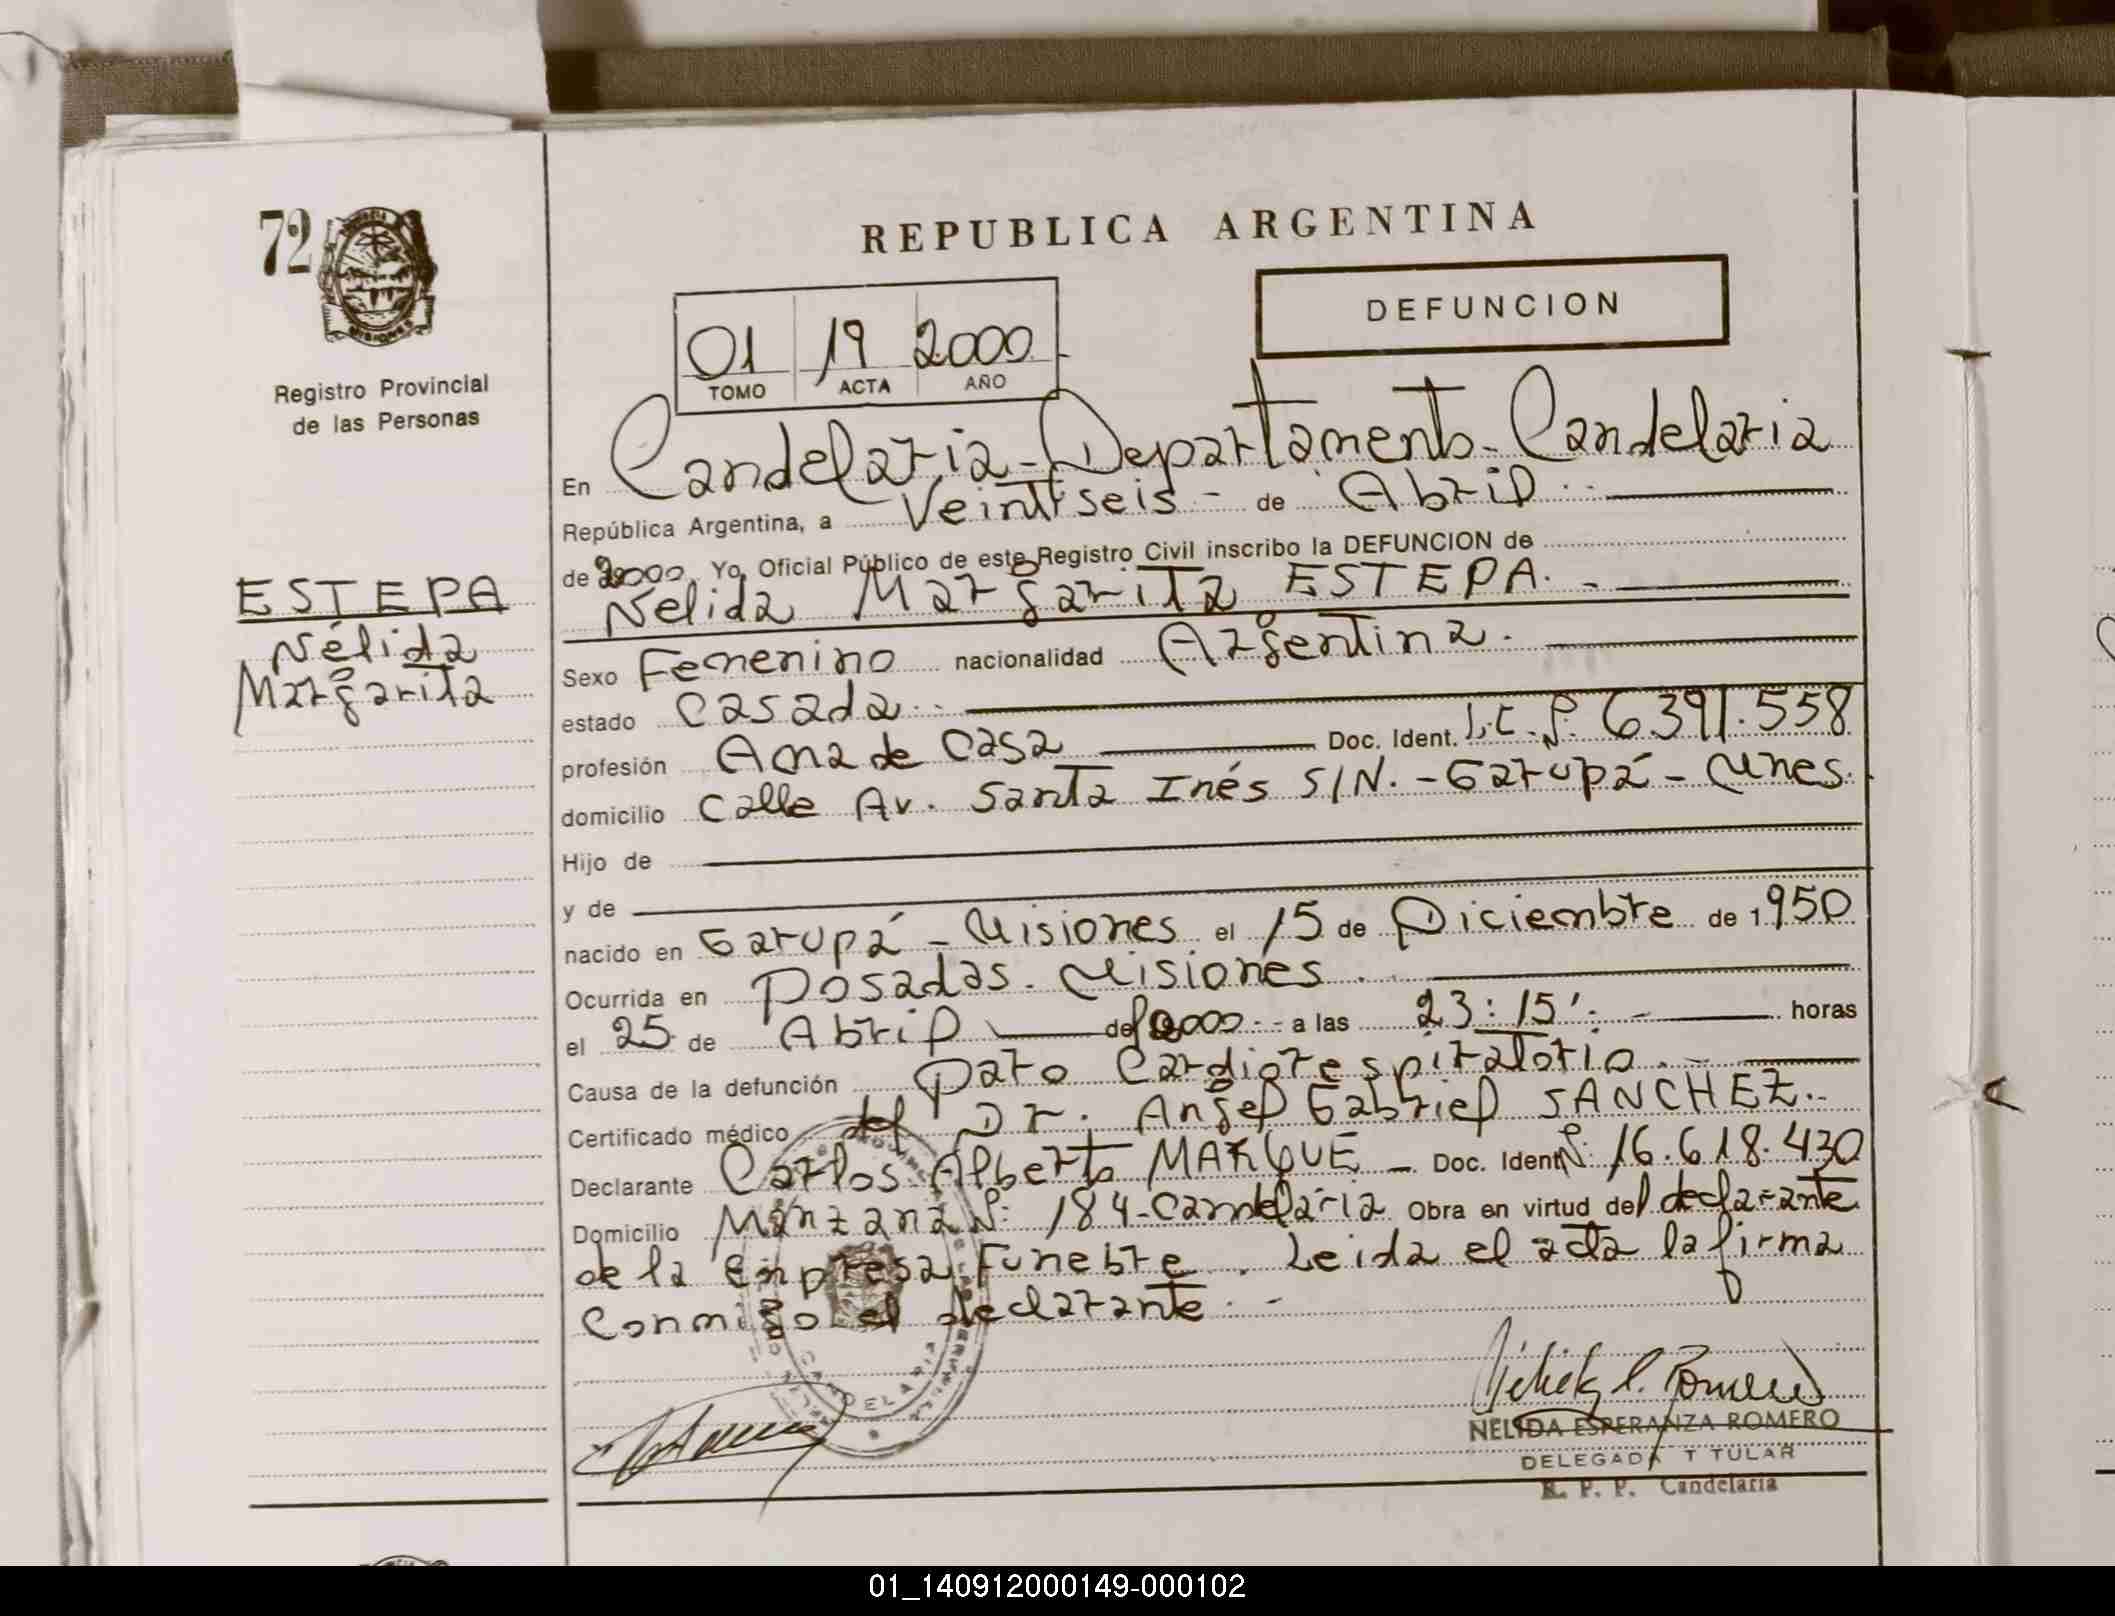 72
MISIONES
Registro Provincial
de las Personas
ESTEPA
Nélida
Margarita
REPUBLICA ARGENTINA
DEFUNCION
01 19 2000
TOMO ACTA AÑO
En Candelaria - Departamento - Candelaria
República Argentina, a Veintiseis - de Abril
de 2000 Yo, Oficial Público de este Registro Civil inscribo la DEFUNCION de
Nelida Margarita ESTEPA.
Sexo Femenino nacionalidad Argentina.
estado Casada
profesión Ama de Casa Doc. Ident. L.C. Nº 6.391.558
domicilio Calle Av. Santa Inés S/N. - Garupá - Mnes.
Hijo de
y de
nacido en Garupá - Misiones el 15 de Diciembre de 1950
Ocurrida en Posadas - Misiones
el 25 de Abril del 2000 - a las 23:15'. - horas
Causa de la defunción Paro Cardiorespiratorio. -
Certificado médico del Dr. Angel Gabriel SANCHEZ. -
Declarante Carlos Alberto MARQUE - Doc. Ident Nº 16.618.430
Domicilio Manzana Nº 184 - Candelaria Obra en virtud del declarante
de la Empresa Funebre. Leida el acta la firma
Conmigo el declarante. -
CANDELARIA
NELIDA ESPERANZA ROMERO
DELEGADA T TULAR
R. P. P. Candelaria
01_140912000149-000102